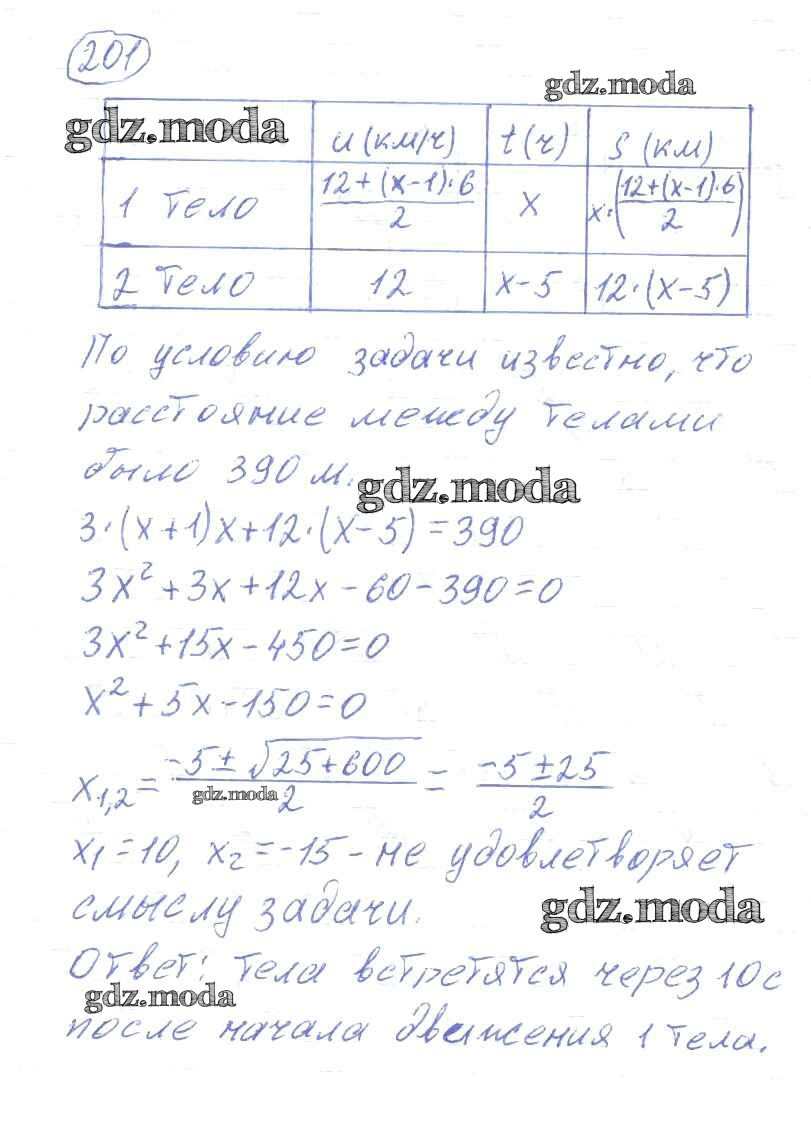 201
gdz.moda
gdz.moda
u (км/ч) t (ч) S (км)
1 тело (12+(x-1)·6)/2 x x·((12+(x-1)·6)/2)
2 тело 12 x-5 12·(x-5)
По условию задачи известно, что
расстояние между телами
было 390 м.
gdz.moda
3·(x+1)x+12·(x-5)=390
3x²+3x+12x-60-390=0
3x²+15x-450=0
x²+5x-150=0
x₁,₂=(-5±√(25+600))/2=(-5±25)/2
gdz.moda
x₁=10, x₂=-15-не удовлетворяет
смыслу задачи.
gdz.moda
Ответ: тела встретятся через 10 с
gdz.moda
после начала движения 1 тела.